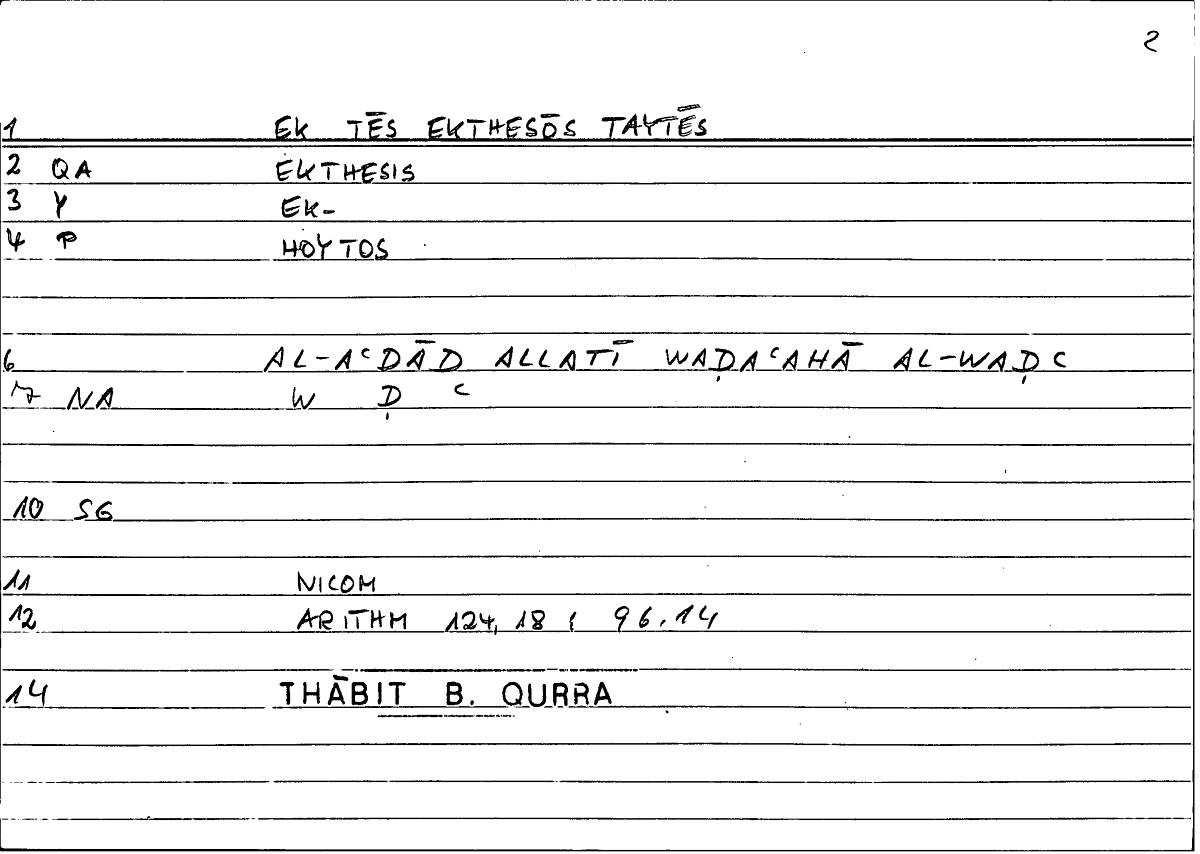 2
1 EK TĒS EKTHESŌS TAYTĒS
2 QA EKTHESIS
3 Y EK-
4 P HOYTOS
6 AL-AᶜDĀD ALLATĪ WAḌAᶜAHĀ AL-WAḌᶜ
7 NA W Ḍ ᶜ
10 SG
11 NICOM
12 ARITHM 124,18 ; 96.14
14 THĀBIT B. QURRA